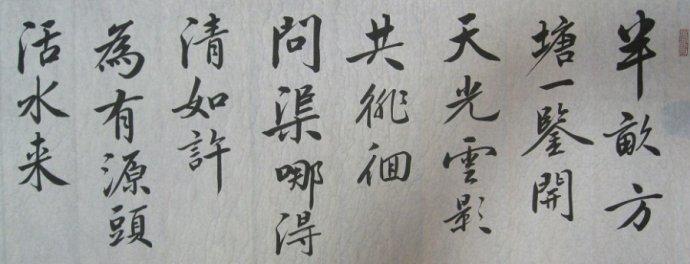 半畝方
塘一鑒開
天光雲影
共徘徊
問渠哪得
清如許
為有源頭
活水来